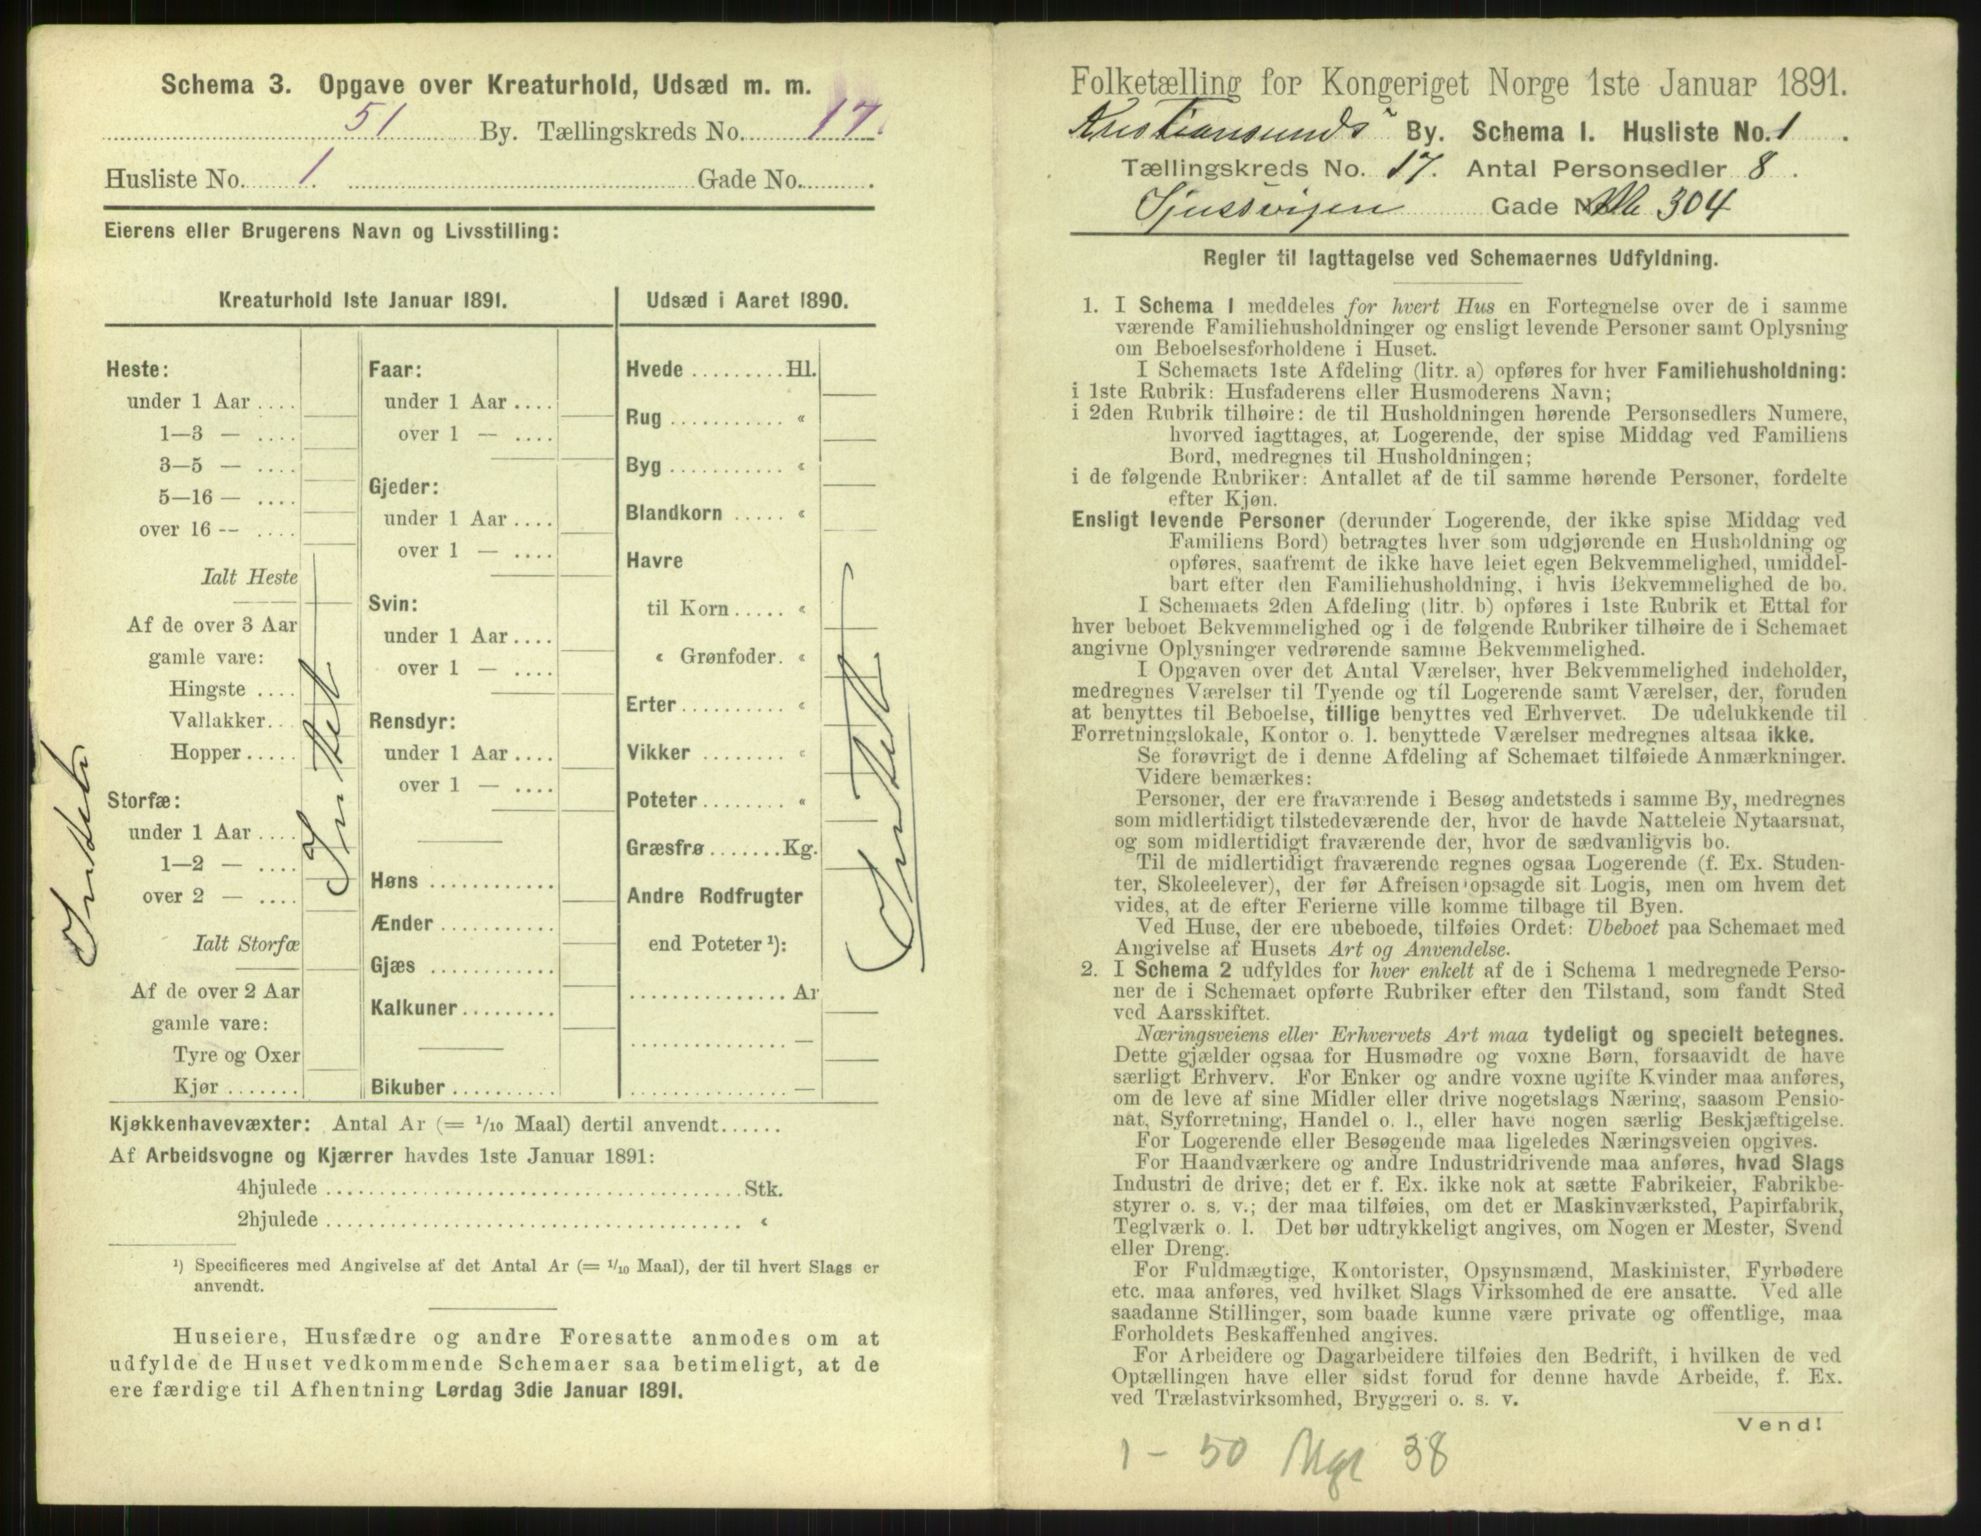 Schema 3. Opgave over Kreaturhold, Udsæd m. m.
51 By. Tællingskreds No. 17.
Husliste No. 1. Gade No. .
Eierens eller Brugerens Navn og Livsstilling:
Kreaturhold 1ste Januar 1891.
Heste:
under 1 Aar ....
1—3 — ....
3—5 — ....
5—16 — ....
over 16 -- ....
Ialt Heste
Af de over 3 Aar
gamle vare:
Hingste ....
Vallakker..
Hopper .....
Storfæ:
under 1 Aar ....
1—2 — ....
over 2 — ....
Ialt Storfæ
Af de over 2 Aar
gamle vare:
Tyre og Oxer
Kjør .......
Intet
Intet
Faar:
under 1 Aar ....
over 1 — ....
Gjeder:
under 1 Aar ....
over 1 — ....
Svin:
under 1 Aar ....
over 1 — ....
Rensdyr:
under 1 Aar ....
over 1 — ....
Høns ............
Ænder ...........
Gjæs ............
Kalkuner.........
Bikuber ..........
Udsæd i Aaret 1890.
Hvede .........Hl.
Rug ........... «
Byg ........... «
Blandkorn ..... «
Havre
til Korn ..... «
« Grønfoder. «
Erter.......... «
Vikker ........ «
Poteter........ «
Græsfrø .......Kg.
Andre Rodfrugter
end Poteter ¹):
............... Ar
............... —
............... —
Intet
Kjøkkenhavevæxter: Antal Ar (= 1/10 Maal) dertil anvendt......
Af Arbeidsvogne og Kjærrer havdes 1ste Januar 1891:
4hjulede ....................................Stk.
2hjulede .................................... «
¹) Specificeres med Angivelse af det Antal Ar (= 1/10 Maal), der til hvert Slags er
anvendt.
Huseiere, Husfædre og andre Foresatte anmodes om at
udfylde de Huset vedkommende Schemaer saa betimeligt, at de
ere færdige til Afhentning Lørdag 3die Januar 1891.
Folketælling for Kongeriget Norge 1ste Januar 1891.
Kristiansunds By. Schema I. Husliste No. 1 .
Tællingskreds No. 17. Antal Personsedler 8 .
Gade 304
Regler til Iagttagelse ved Schemaernes Udfyldning.
1. I Schema 1 meddeles for hvert Hus en Fortegnelse over de i samme
værende Familiehusholdninger og ensligt levende Personer samt Oplysning
om Beboelsesforholdene i Huset.
I Schemaets 1ste Afdeling (litr. a) opføres for hver Familiehusholdning:
i 1ste Rubrik: Husfaderens eller Husmoderens Navn;
i 2den Rubrik tilhøire: de til Husholdningen hørende Personsedlers Numere,
hvorved iagttages, at Logerende, der spise Middag ved Familiens
Bord, medregnes til Husholdningen;
i de følgende Rubriker: Antallet af de til samme hørende Personer, fordelte
efter Kjøn.
Ensligt levende Personer (derunder Logerende, der ikke spise Middag ved
Familiens Bord) betragtes hver som udgjørende en Husholdning og
opføres, saafremt de ikke have leiet egen Bekvemmelighed, umiddel-
bart efter den Familiehusholdning, i hvis Bekvemmelighed de bo.
I Schemaets 2den Afdeling (litr. b) opføres i 1ste Rubrik et Ettal for
hver beboet Bekvemmelighed og i de følgende Rubriker tilhøire de i Schemaet
angivne Oplysninger vedrørende samme Bekvemmelighed.
I Opgaven over det Antal Værelser, hver Bekvemmelighed indeholder,
medregnes Værelser til Tyende og til Logerende samt Værelser, der, foruden
at benyttes til Beboelse, tillige benyttes ved Erhvervet. De udelukkende til
Forretningslokale, Kontor o. l. benyttede Værelser medregnes altsaa ikke.
Se forøvrigt de i denne Afdeling af Schemaet tilføiede Anmærkninger.
Videre bemærkes:
Personer, der ere fraværende i Besøg andetsteds i samme By, medregnes
som midlertidigt tilstedeværende der, hvor de havde Natteleie Nytaarsnat,
og som midlertidigt fraværende der, hvor de sædvanligvis bo.
Til de midlertidigt fraværende regnes ogsaa Logerende (f. Ex. Studen-
ter, Skoleelever), der før Afreisen opsagde sit Logis, men om hvem det
vides, at de efter Ferierne ville komme tilbage til Byen.
Ved Huse, der ere ubeboede, tilføies Ordet: Ubeboet paa Schemaet med
Angivelse af Husets Art og Anvendelse.
2. I Schema 2 udfyldes for hver enkelt af de i Schema 1 medregnede Perso-
ner de i Schemaet opførte Rubriker efter den Tilstand, som fandt Sted
ved Aarsskiftet.
Næringsveiens eller Erhvervets Art maa tydeligt og specielt betegnes.
Dette gjælder ogsaa for Husmødre og voxne Børn, forsaavidt de have
særligt Erhverv. For Enker og andre voxne ugifte Kvinder maa anføres,
om de leve af sine Midler eller drive nogetslags Næring, saasom Pensio-
nat, Syforretning, Handel o. l., eller have nogen særlig Beskjæftigelse.
For Logerende eller Besøgende maa ligeledes Næringsveien opgives.
For Haandværkere og andre Industridrivende maa anføres, hvad Slags
Industri de drive; det er f. Ex. ikke nok at sætte Fabrikeier, Fabrikbe-
styrer o. s. v.; der maa tilføies, om det er Maskinværksted, Papirfabrik,
Teglværk o. l. Det bør udtrykkeligt angives, om Nogen er Mester, Svend
eller Dreng.
For Fuldmægtige, Kontorister, Opsynsmænd, Maskinister, Fyrbødere
etc. maa anføres, ved hvilket Slags Virksomhed de ere ansatte. Ved alle
saadanne Stillinger, som baade kunne være private og offentlige, maa
Forholdets Beskaffenhed angives.
For Arbeidere og Dagarbeidere tilføies den Bedrift, i hvilken de ved
Optællingen have eller sidst forud for denne havde Arbeide, f. Ex.
ved Trælastvirksomhed, Bryggeri o. s. v.
Vend!
1 - 50 Mgl 38